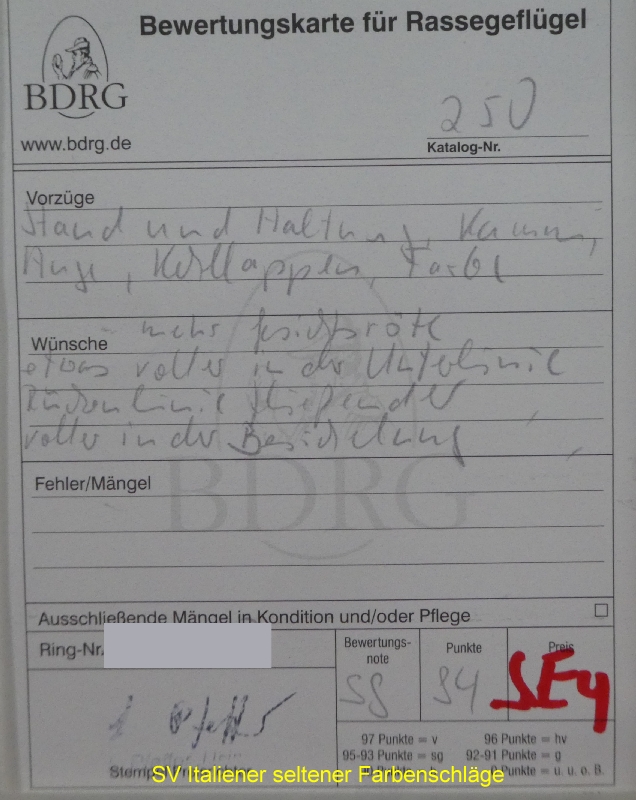 Bewertungskarte für Rassegeflügel
BDRG
www.bdrg.de
250
Katalog-Nr.
Vorzüge
Stand und Haltung, Kamm,
Auge, Kehllappen, Farbe
mehr Gesichtsröte
Wünsche
etwas voller in der Unterlinie
Rückenlinie fließender
voller in der Besichelung
Fehler/Mängel
BDRG
Ausschließende Mängel in Kondition und/oder Pflege
Ring-Nr.
Bewertungs-
note
Punkte
Preis
SG
94
97 Punkte = v
96 Punkte = hv
95-93 Punkte = sg
92-91 Punkte = g
Punkte = u. u. o. B.
SV Italiener seltener Farbenschläge